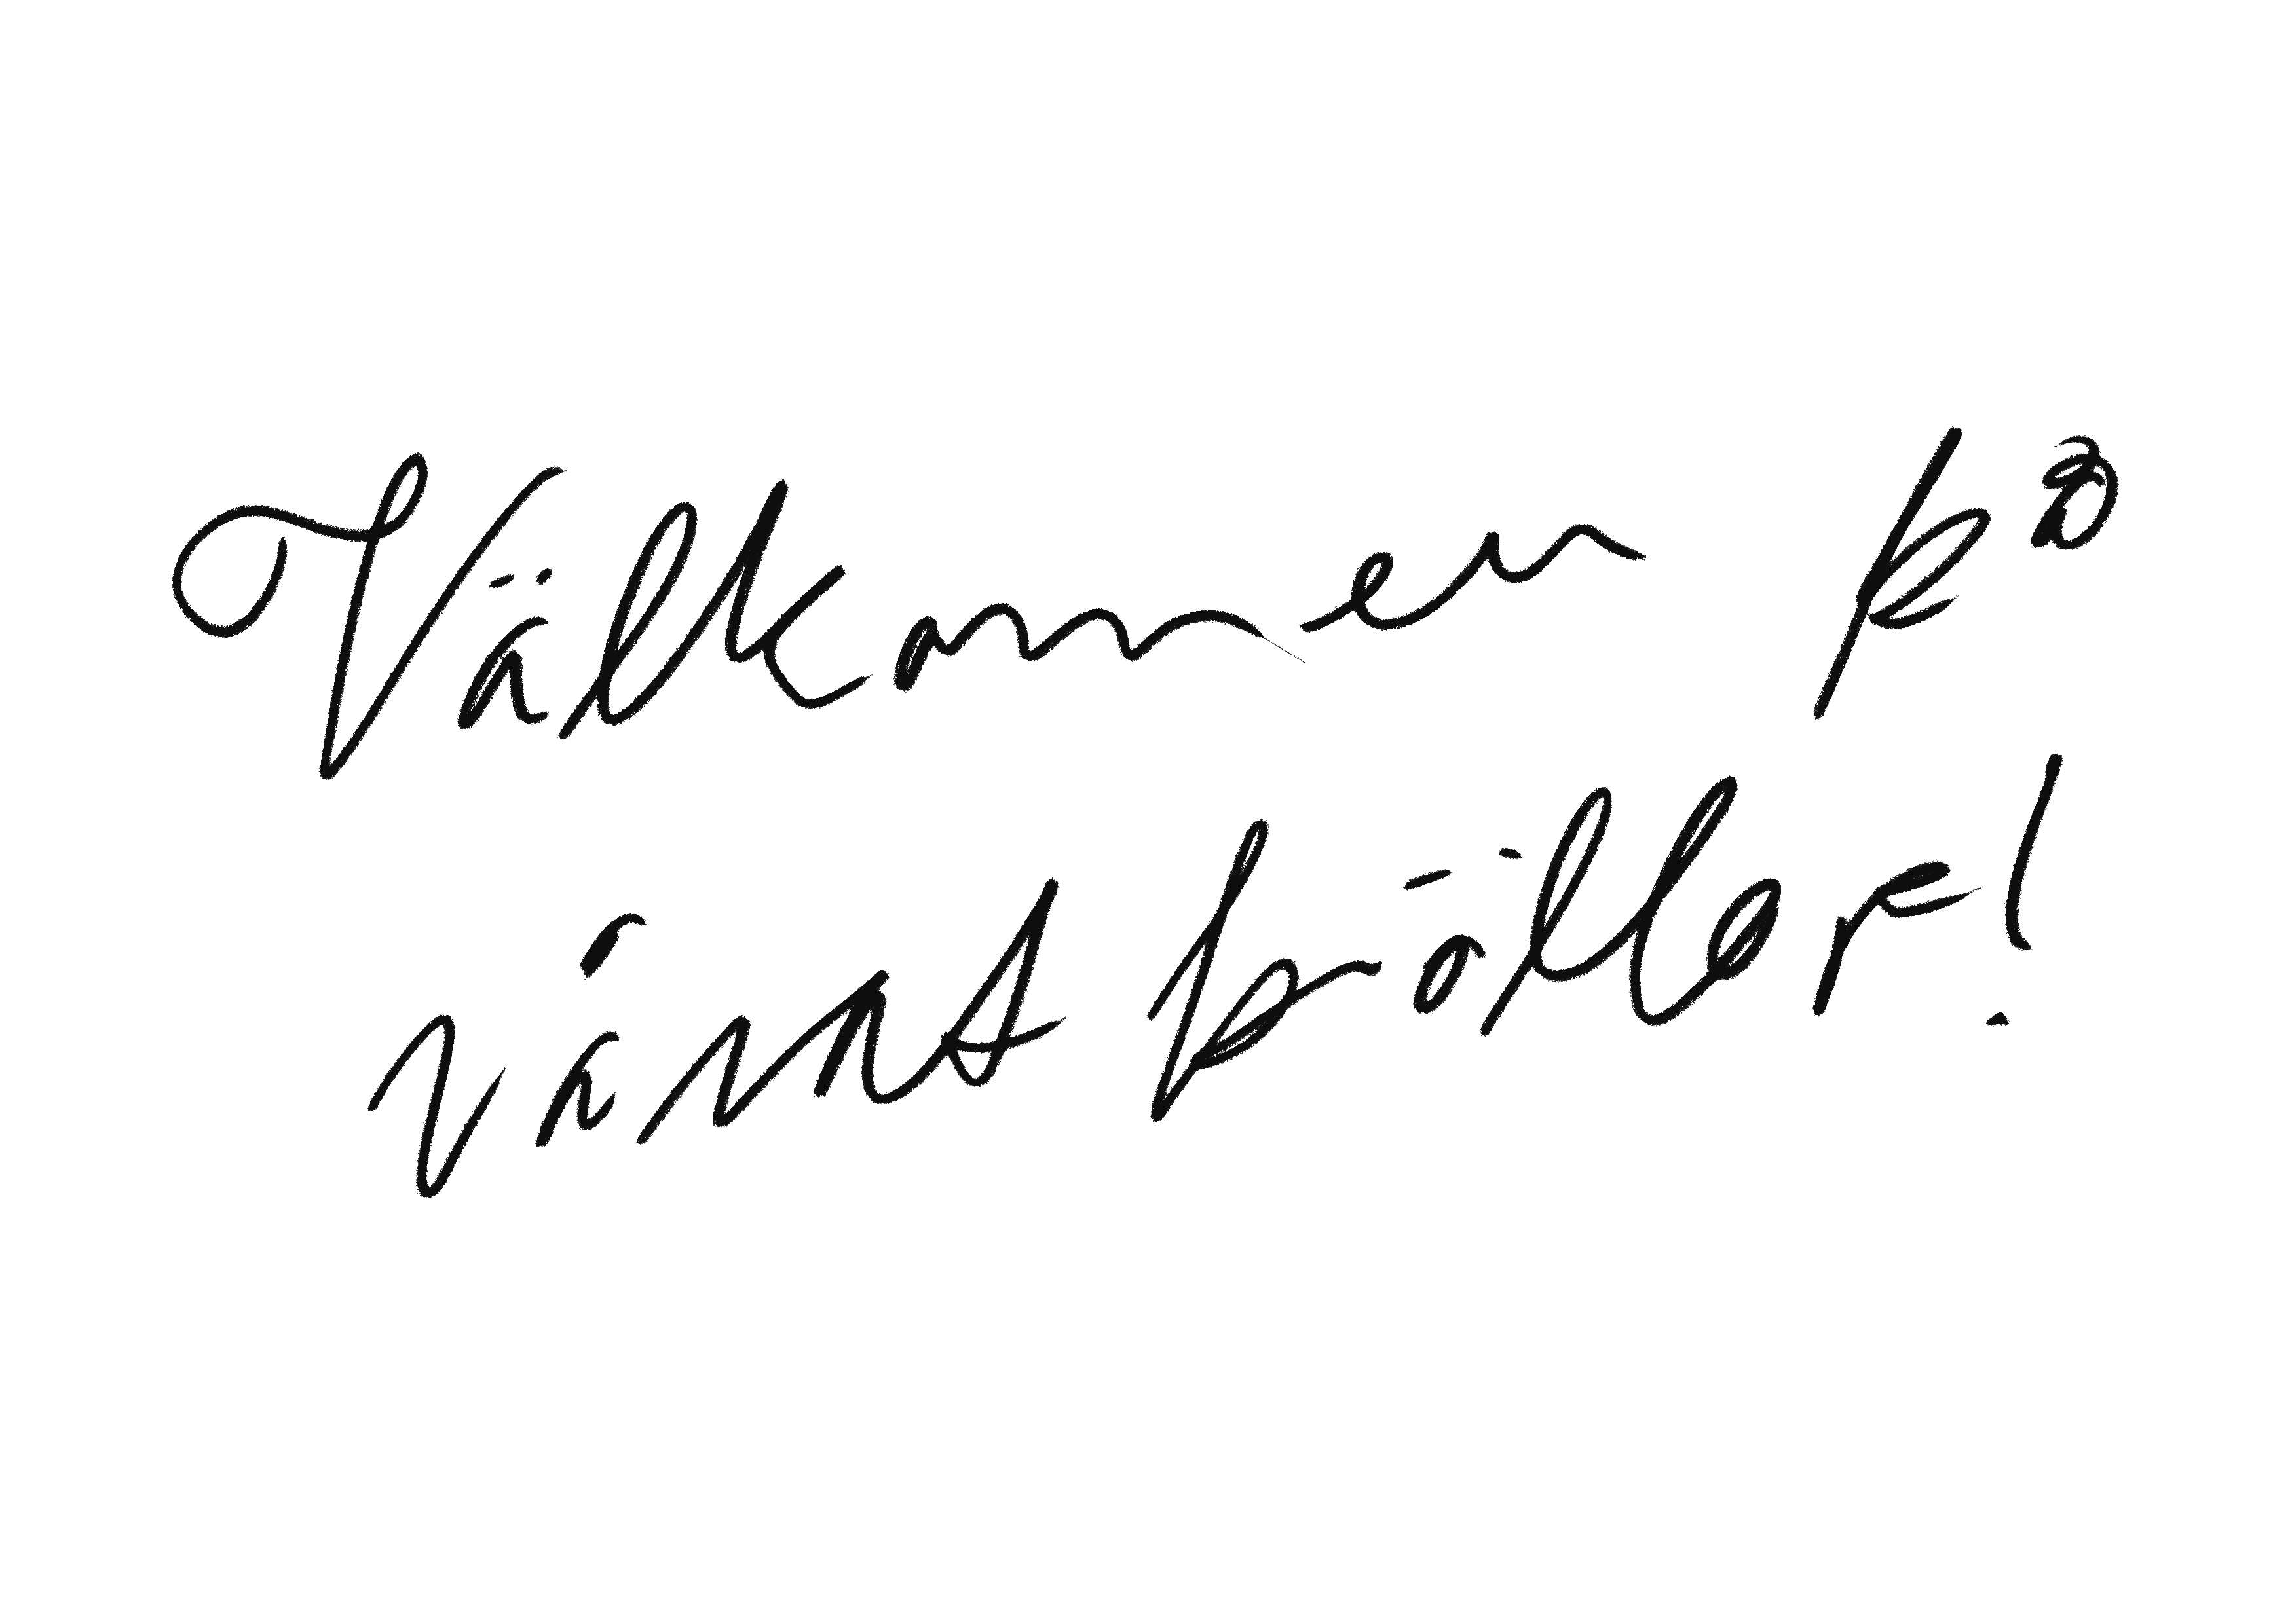 Välkommen på
vårat bröllop!